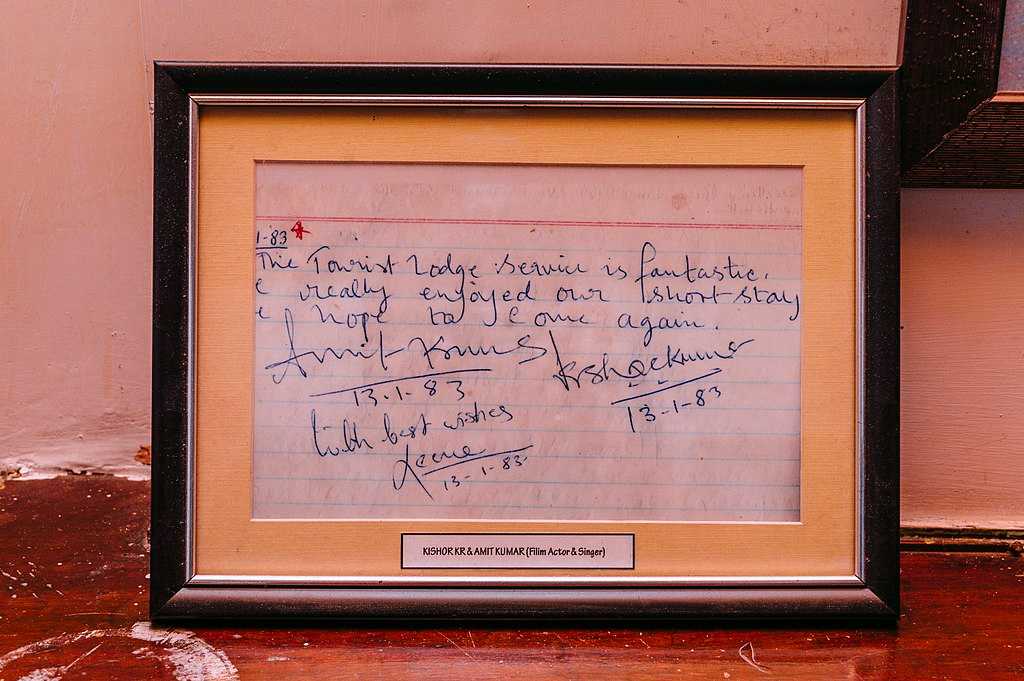 1-83
The Tourist Lodge service is fantastic.
e really enjoyed our short stay
e hope to come again.
Amit Kumar Kishore Kumar
13.1.83 13-1-83
With best wishes
Leena
13-1-83.
KISHOR KR & AMIT KUMAR (Fillim Actor & Singer)